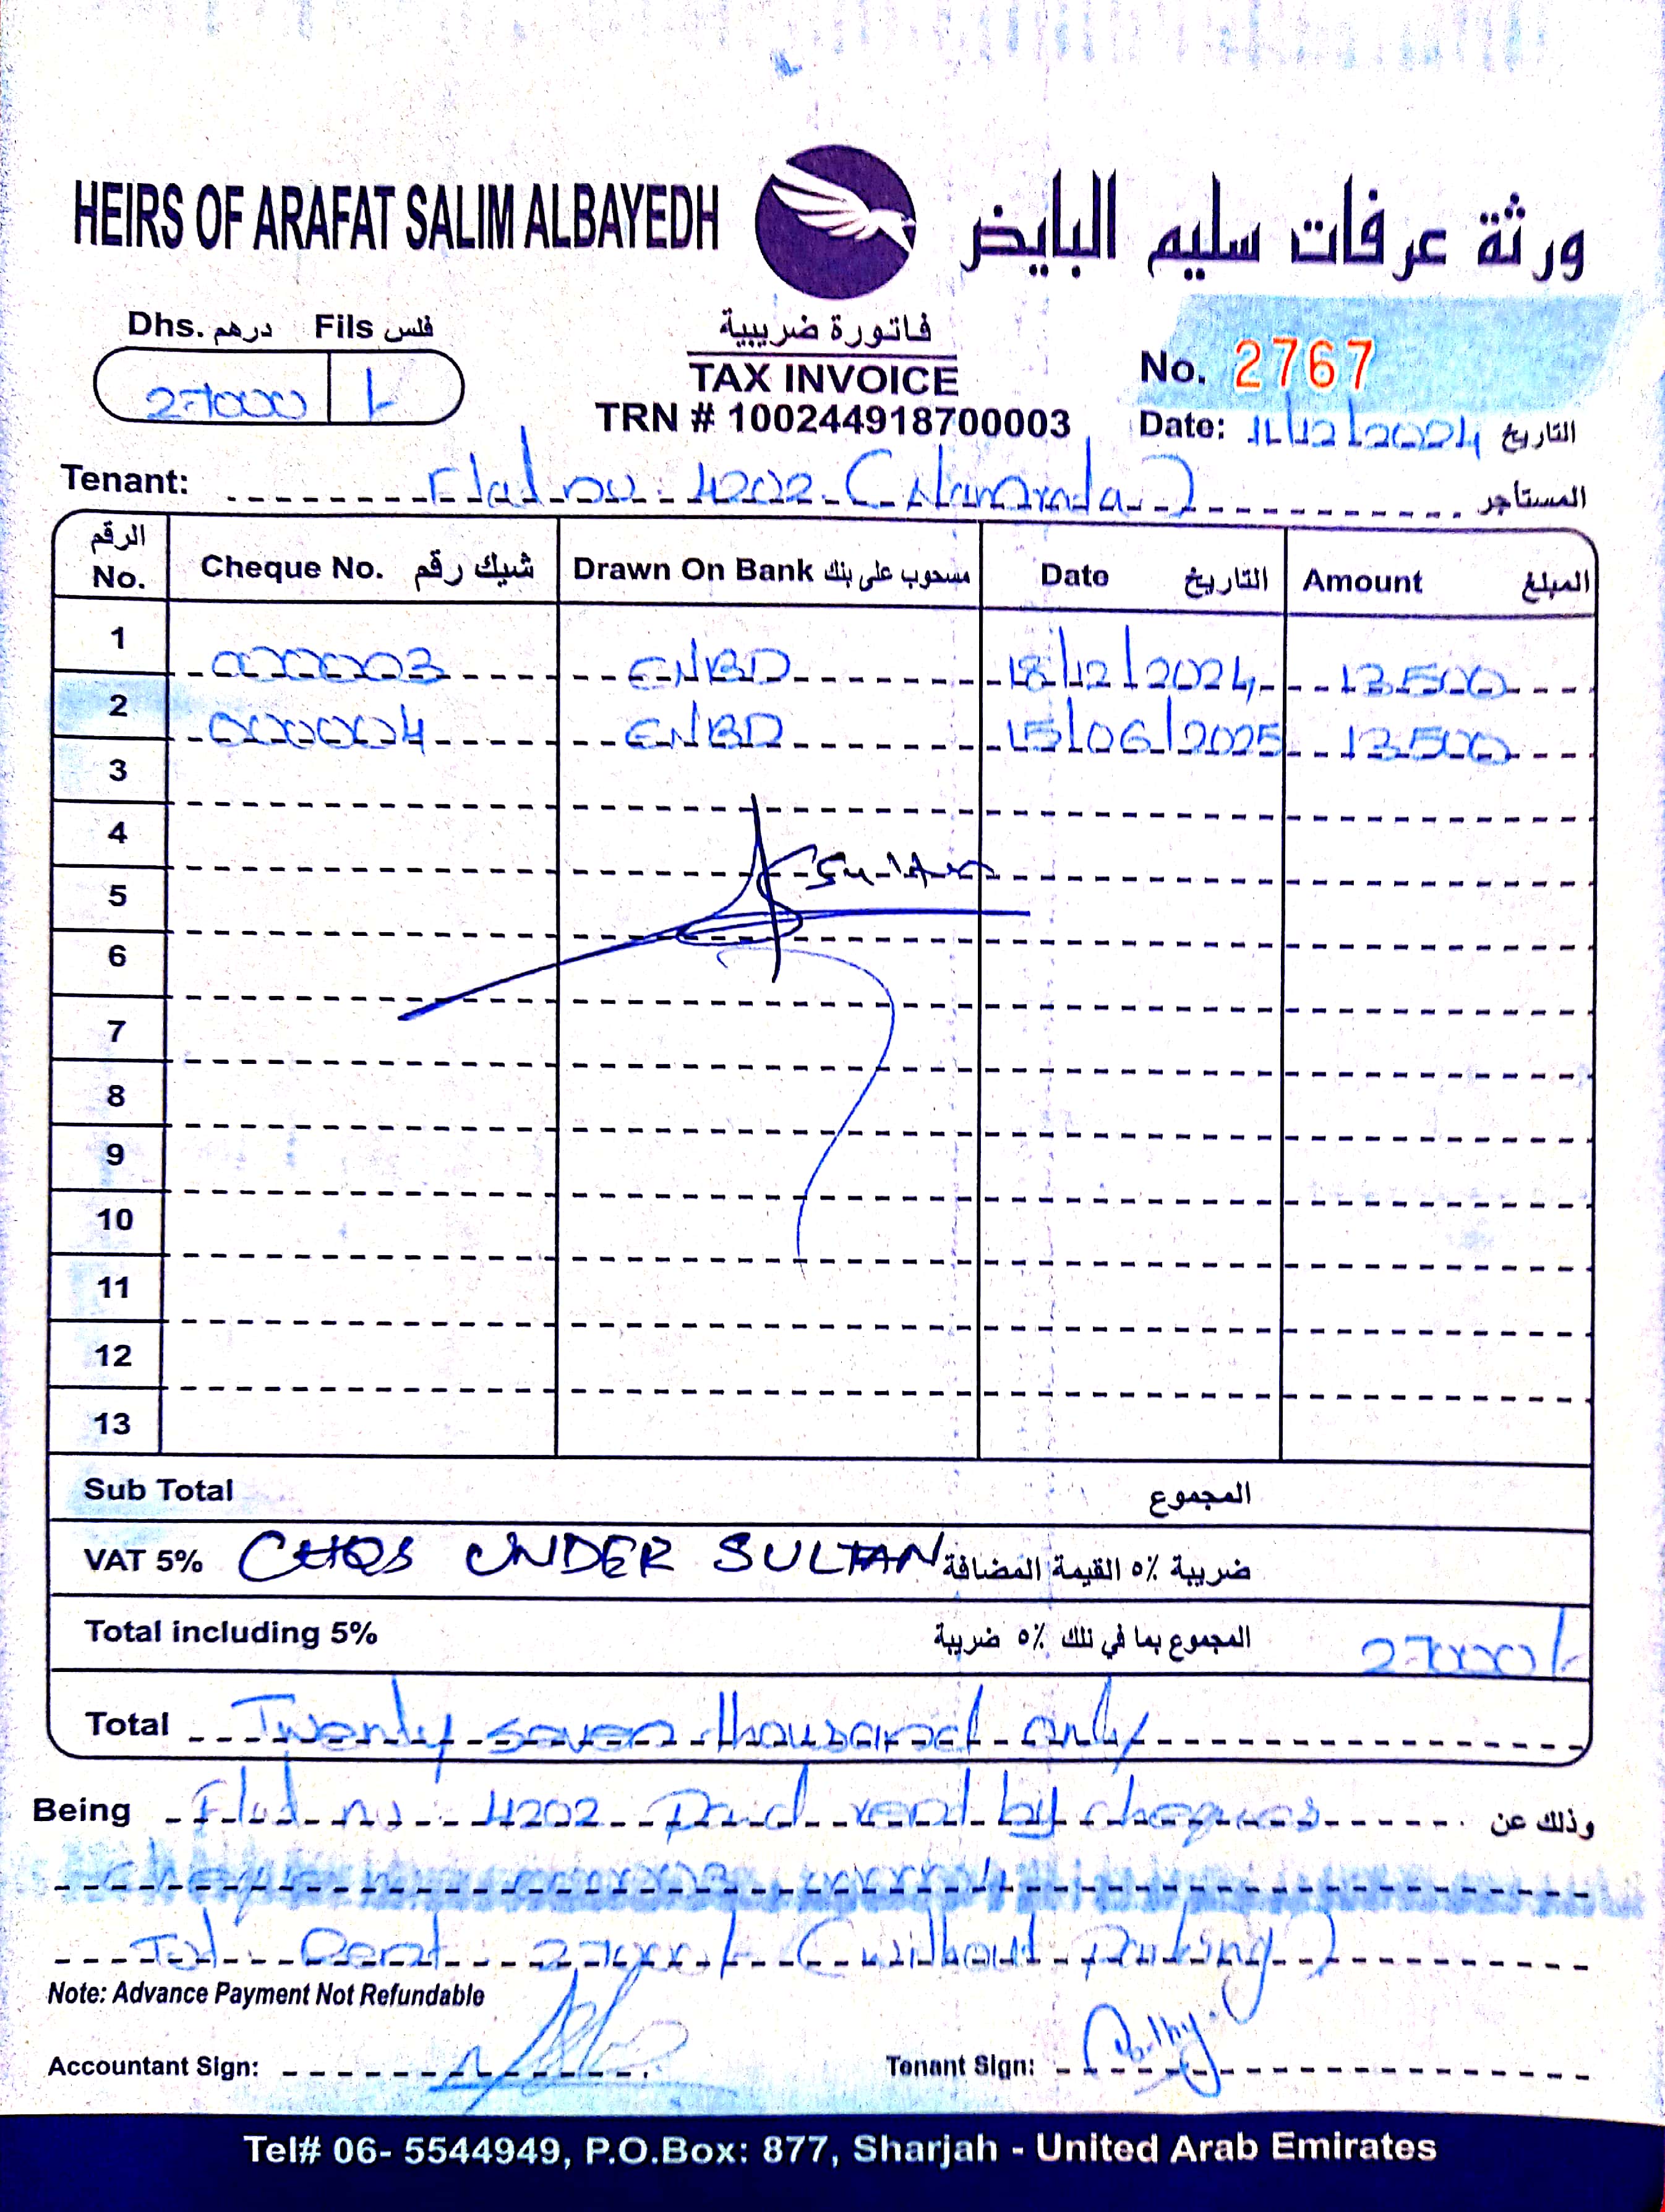 HEIRS OF ARAFAT SALIM ALBAYEDH ورثة عرفات سليم البايض
Dhs. درهم Fils فلس
27000 /-
فاتورة ضريبية
TAX INVOICE
TRN # 100244918700003
No. 2767
Date: 11/12/2024 التاريخ
Tenant: Flat no 4202 ( ) المستاجر
الرقم No. Cheque No. شيك رقم Drawn On Bank مسحوب على بنك Date التاريخ Amount المبلغ
1 000003 ENBD 18/12/2024 13500
2 000004 ENBD 15/06/2025 13500
3
4
Sultan
5
6
7
8
9
10
11
12
13
Sub Total المجموع
VAT 5% CHQS UNDER SULTAN ضريبة ٥٪ القيمة المضافة
Total including 5% المجموع بما في ذلك ٥٪ ضريبة 27000/-
Total Twenty seven thousand only
Being Flat no 4202 Paid rent by cheques وذلك عن
cheque no 000003 000004
Tot Rent 27000/- (without Parking)
Note: Advance Payment Not Refundable
Accountant Sign: Tenant Sign:
Tel# 06- 5544949, P.O.Box: 877, Sharjah - United Arab Emirates